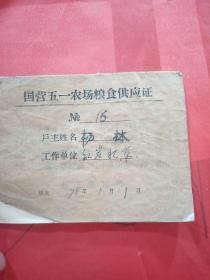 国营五一农场粮食供应证
№ 16
户主姓名 杨林
工作单位
78年1月1日